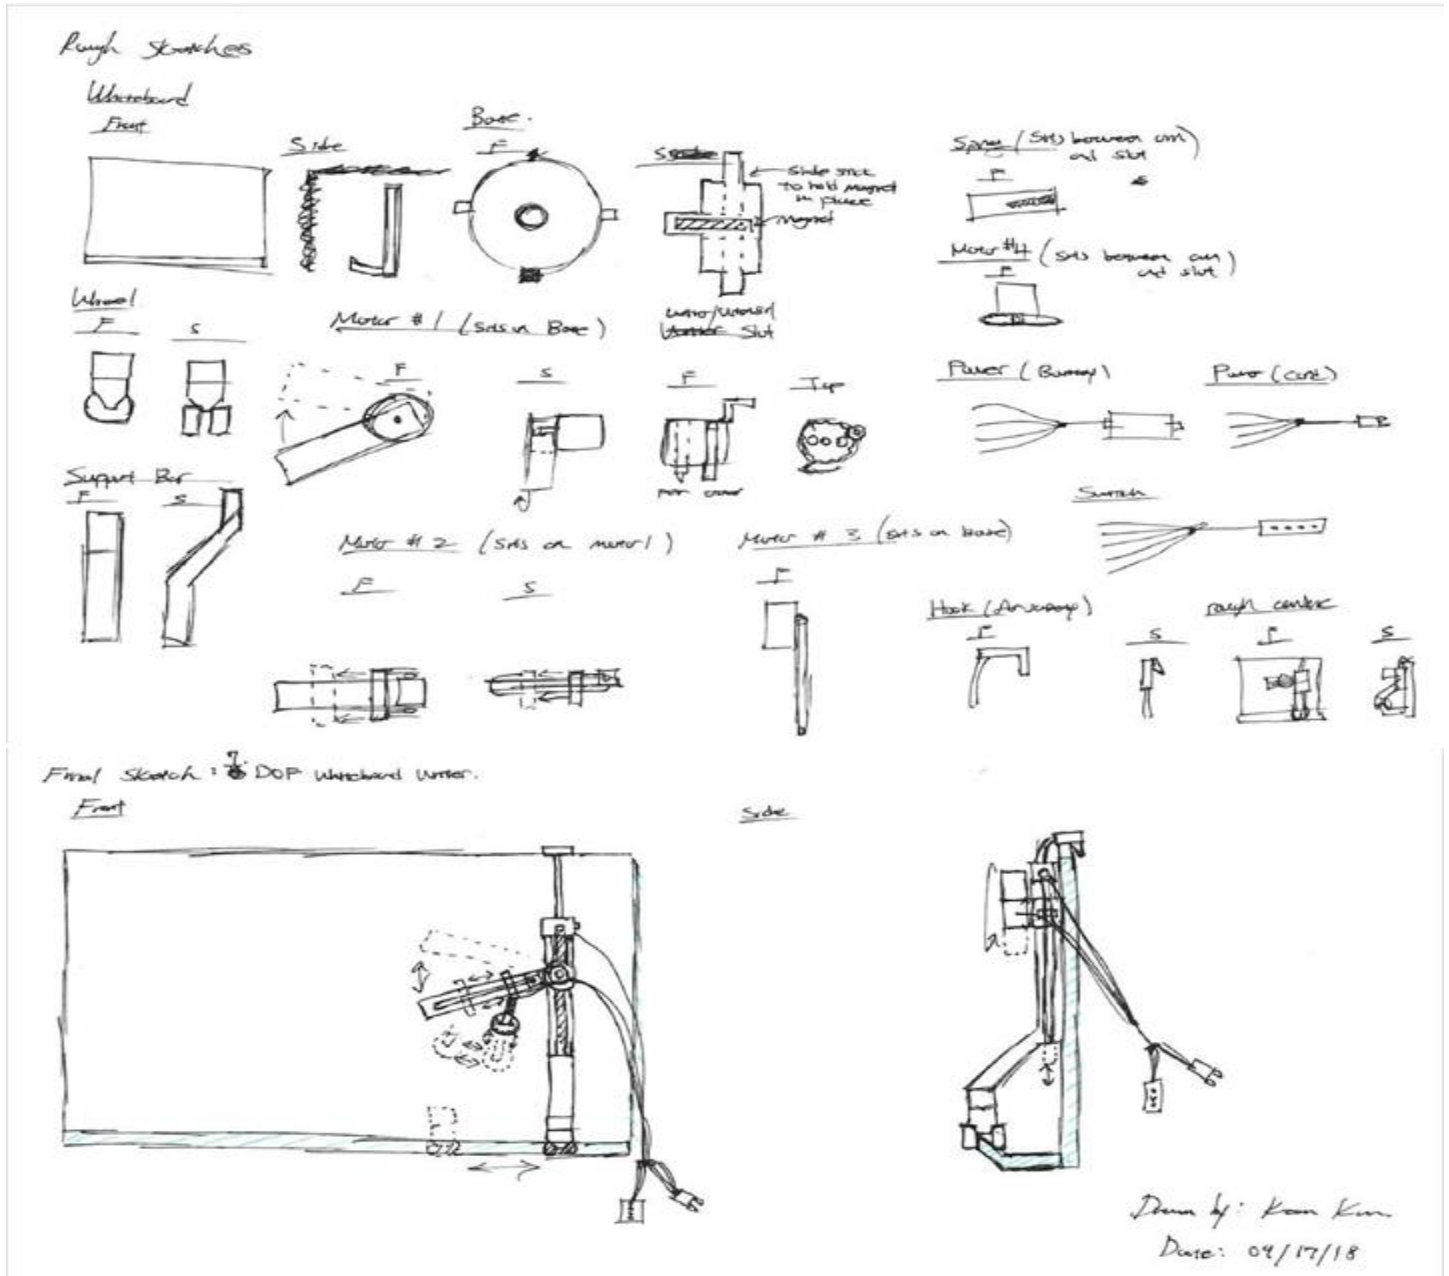 Rough Sketches
Whiteboard
Front
Side
Base.
F
Side stick
to hold magnet
in place
magnet
Spray (Sits between arm
and slot)
F
Motor #4 (Sits between arm
and slot)
F
Wheel
F S
Motor #1 (Sits on Base)
F S
Slot
F Top
Power (Battery) Power (cord)
Support Bar
F S
Switch
Motor #2 (Sits on motor 1)
F S
Motor #3 (Sits on base)
F
Hook
F S
rough
F S
Final Sketch: 7 DOF Whiteboard Writer.
Front
Side
Drawn by:
Date: 09/17/18